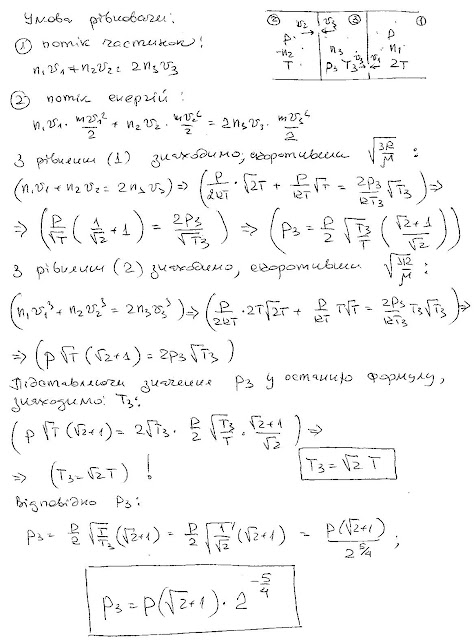 Умова рівноваги:
① потік частинок:
n₁v₁ + n₂v₂ = 2n₃v₃
② v₂ v₃ ③ ①
P P
n₂ n₃ n₁
T P₃ T₃ v₃ v₁ 2T
② потік енергій:
n₁v₁ · mv₁²/2 + n₂v₂ · mv₂²/2 = 2n₃v₃ · mv₃²/2
З рівнянн (1) знаходимо, скоротивши √(3R/μ) :
(n₁v₁ + n₂v₂ = 2n₃v₃) ⇒ (P/2kT · √2T + P/kT √T = 2P₃/kT₃ √T₃) ⇒
⇒ (P/√T (1/√2 + 1) = 2P₃/√T₃) ⇒ (P₃ = P/2 √(T₃/T) (√2+1/√2))
З рівнянн (2) знаходимо, скоротивши √(3R/μ) :
(n₁v₁³ + n₂v₂³ = 2n₃v₃³) ⇒ (P/2kT · 2T√2T + P/kT T√T = 2P₃/kT₃ T₃√T₃) ⇒
⇒ (P√T (√2+1) = 2P₃√T₃)
Підставляючи значення P₃ у останню формулу,
знаходимо T₃:
(P√T (√2+1) = 2√T₃ · P/2 √(T₃/T) · √2+1/√2) ⇒
⇒ (T₃ = √2 T) ! T₃ = √2 T
Відповідно P₃:
P₃ = P/2 √(T/T₃) (√2+1) = P/2 √(1/√2) (√2+1) = P(√2+1)/2^(5/4) ;
P₃ = P(√2+1) · 2^(-5/4)